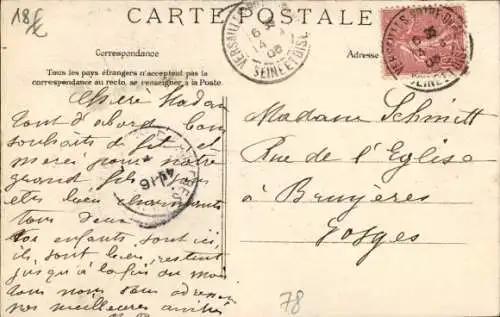 18f
CARTE POSTALE
Correspondance
Adresse
Tous les pays étrangers n'acceptent pas la
correspondance au recto, se renseigner à la Poste
VERSAILLES
6
14
06
SEINE ET OISE
Madame
tout d'abord bons
souhaits de fête et
merci pour votre
grand fils
êtes bien charmants
tous deux
Vos enfants sont ici,
ils sont bien, restent
jusqu'à la fin du mois
tous nous vous
nos meilleures amitiés
Madame Schmitt
Rue de l'Eglise
à Bruyères
Vosges
78